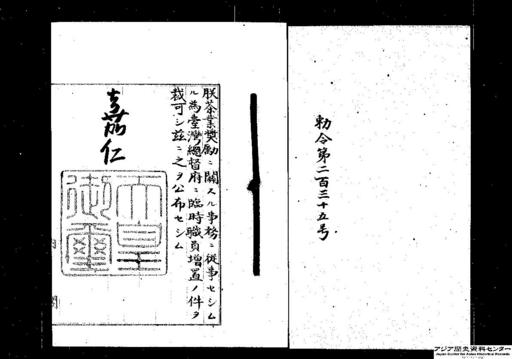 勅令第二百三十五号
朕茶業奬勵ニ關スル事務ニ從事セシム
ル為臺灣總督府ニ臨時職員增置ノ件ヲ
裁可シ茲ニ之ヲ公布セシム
嘉仁
天皇
御璽
アジア歴史資料センター
Japan Center for Asian Historical Records